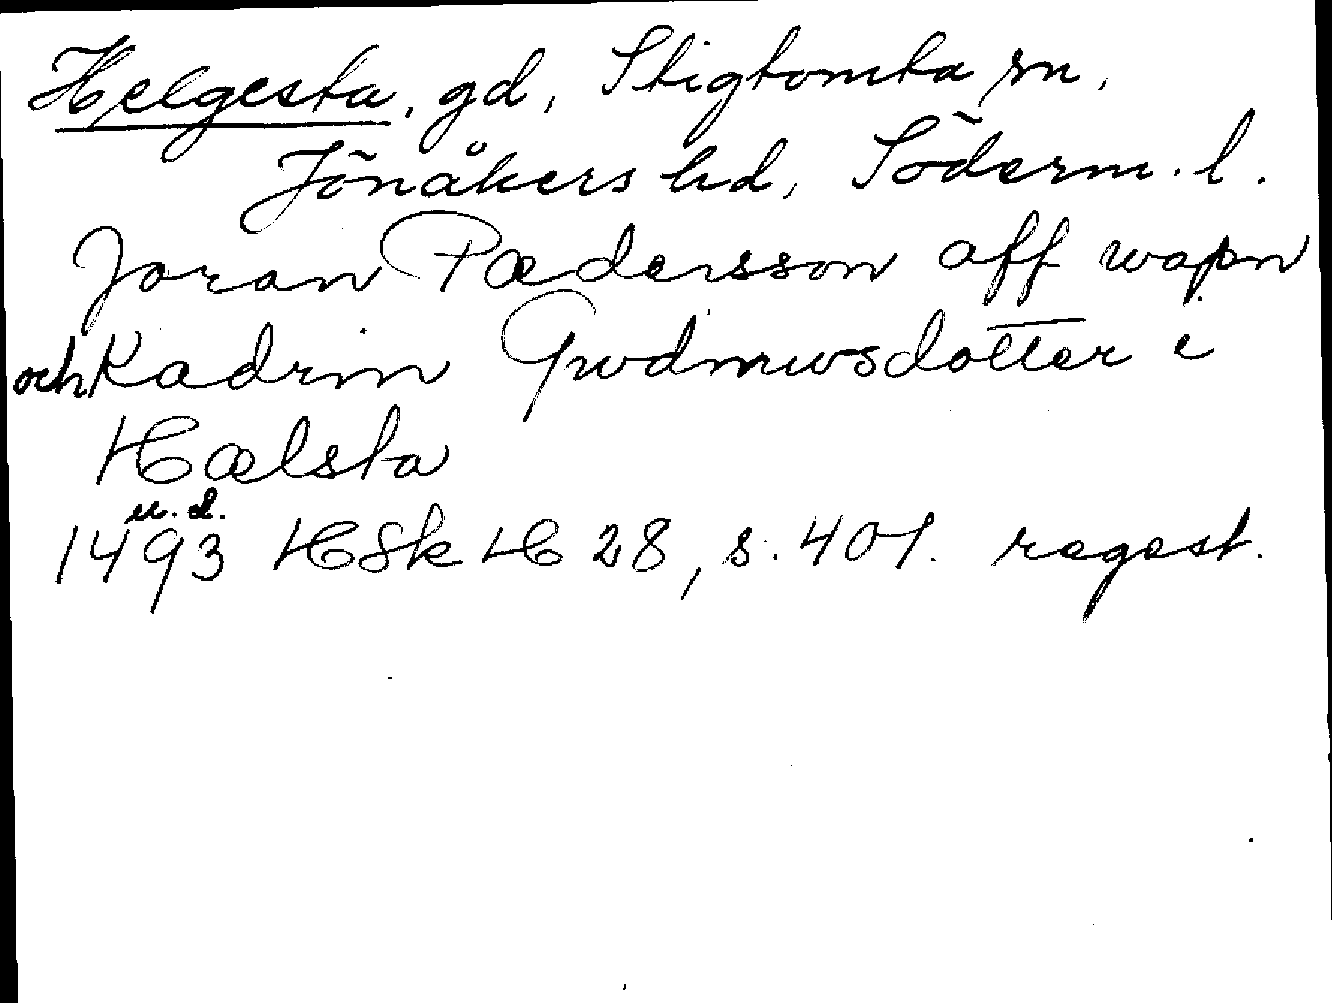 Helgesta, gd, Stigtomta sn,
Jönåkers hd, Söderm. l.
Joran Pædersson aff wapn
och Kadrin Gwdmwsdotter i
Hælsta
u. d.
1493 HSk H 28, s. 401. regest.